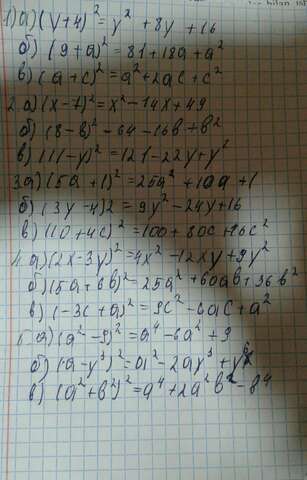 1) а) (y+4)² = y² + 8y + 16
б) (9+a)² = 81 + 18a + a²
в) (a+c)² = a² + 2ac + c²
2. а) (x-7)² = x² - 14x + 49
б) (8-в)² - 64 - 16в + в²
в) (11-y)² = 121 - 22y + y²
3 а) (5a+1)² = 25a² + 10a + 1
б) (3y-4)2 = 9y² - 24y + 16
в) (10+4c)² = 100 + 80c + 16c²
4. а) (2x-3y)² = 4x² - 12xy + 9y²
б) (5a+6в)² = 25a² + 60aв + 36в²
в) (-3c+a)² = 9c² - 6ac + a²
а) (a²-3)² = a⁴ - 6a² + 9
б) (a-y³)² = a² - 2ay³ + y⁶
в) (a²+в²)² = a⁴ + 2a²в² - в⁴